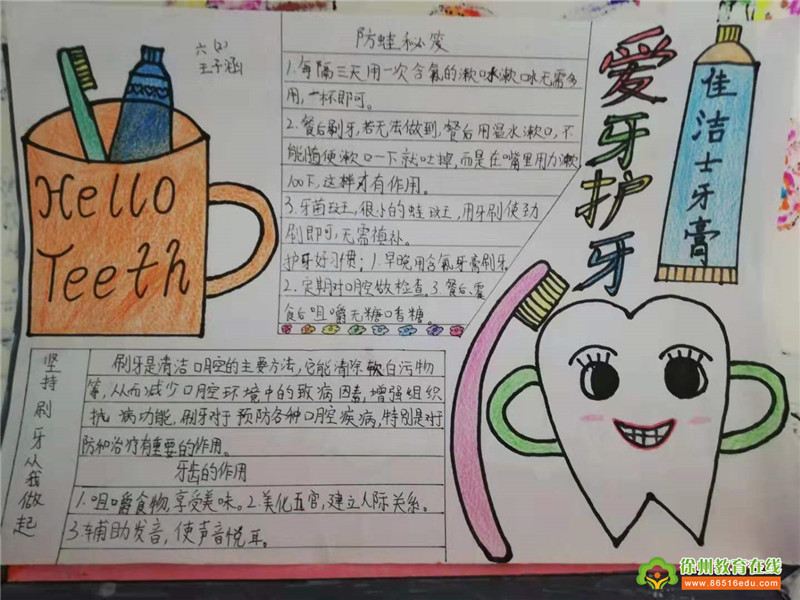 六(2)
王子涵
Hello
Teeth
防蛀秘笈
1.每隔三天用一次含氟的漱口水漱口水无需多
用,一杯即可。
2.餐后刷牙,若无法做到,餐后用温水漱口,不
能随便漱口一下就吐掉,而是在嘴里用力漱
100下,这样才有作用。
3.牙菌斑,很小的蛀斑,用牙刷使劲
刷即可,无需植补。
护牙好习惯;1.早晚用含氟牙膏刷牙。
2.定期对口腔做检查。3.餐后、零
食后咀嚼无糖口香糖。
爱牙护牙
佳洁士牙膏
坚持刷牙从我做起
刷牙是清洁口腔的主要方法,它能清除软白污物
等,从而减少口腔环境中的致病因素,增强组织
抗病功能,刷牙对于预防各种口腔疾病,特别是对
防和治疗有重要的作用。
牙齿的作用
1.咀嚼食物,享受美味。2.美化五官,建立人际关系。
3.辅助发音,使声音悦耳。
徐州教育在线
www.86516edu.com